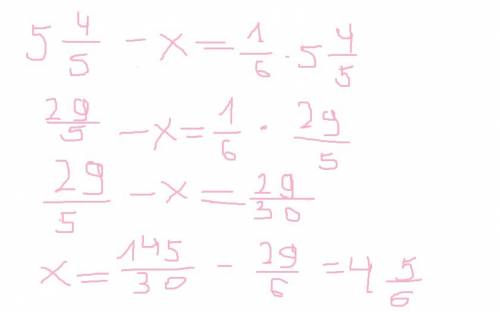 5 4/5 - x = 1/6 · 5 4/5
29/5 - x = 1/6 · 29/5
29/5 - x = 29/30
x = 145/30 - 29/6 = 4 5/6